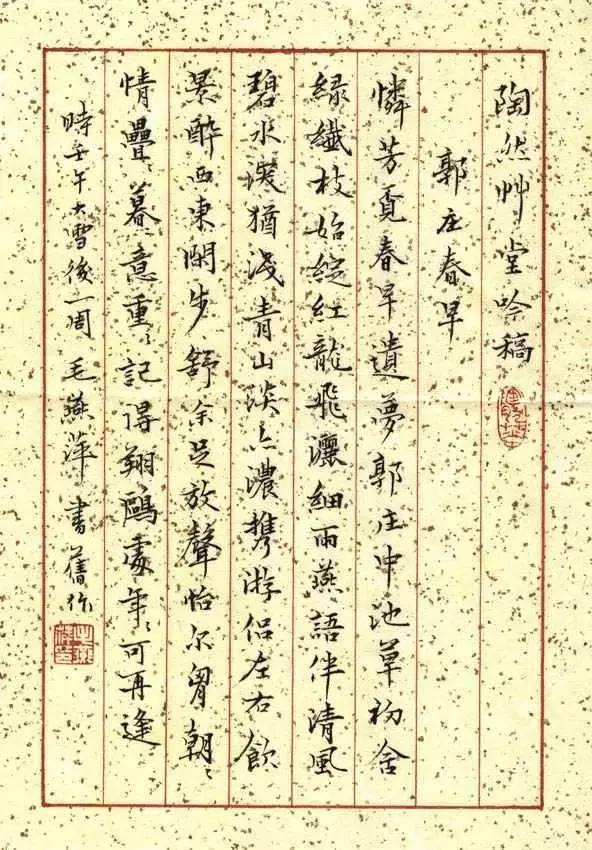 陶然艸堂吟稿
郭庄春早
憐芳覓春早遺夢郭庄中池草初含
緑纖枝始綻紅龍飛灑細雨燕語伴清風
碧水深猶淺青山淡亦濃携游侣左右飲
景醉西東閑步舒余足放聲怡尔胷朝〻
情疊〻暮〻意重〻記得翔鷗處年〻可再逢
時壬午大雪後一周毛燕萍書舊作